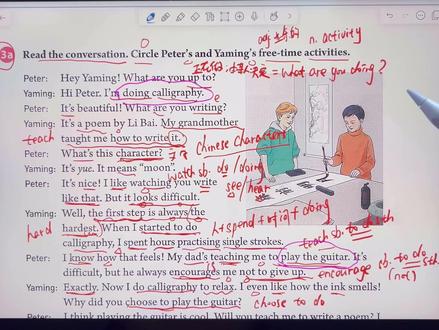 adj 主动的 n. activity
3a Read the conversation. Circle Peter's and Yaming's free-time activities.
= what are you doing?
Peter: Hey Yaming! What are you up to?
Yaming: Hi Peter. I'm doing calligraphy.
Peter: It's beautiful! What are you writing?
Yaming: It's a poem by Li Bai. My grandmother
teach taught me how to write it.
Chinese characters
Peter: What's this character?
Yaming: It's yue. It means "moon".
watch sb. do / doing
Peter: It's nice! I like watching you write
see / hear
like that. But it looks difficult.
Yaming: Well, the first step is always the
hard hardest. When I started to do
人+spend+时间+doing
calligraphy, I spent hours practising single strokes.
teach sb. to do sth
Peter: I know how that feels! My dad's teaching me to play the guitar. It's
difficult, but he always encourages me not to give up.
encourage sb. to do sth
(not)
Yaming: Exactly. Now I do calligraphy to relax. I even like how the ink smells!
Why did you choose to play the guitar?
choose to do
Peter: I think playing the guitar is cool. Will you teach me to write a poem? I